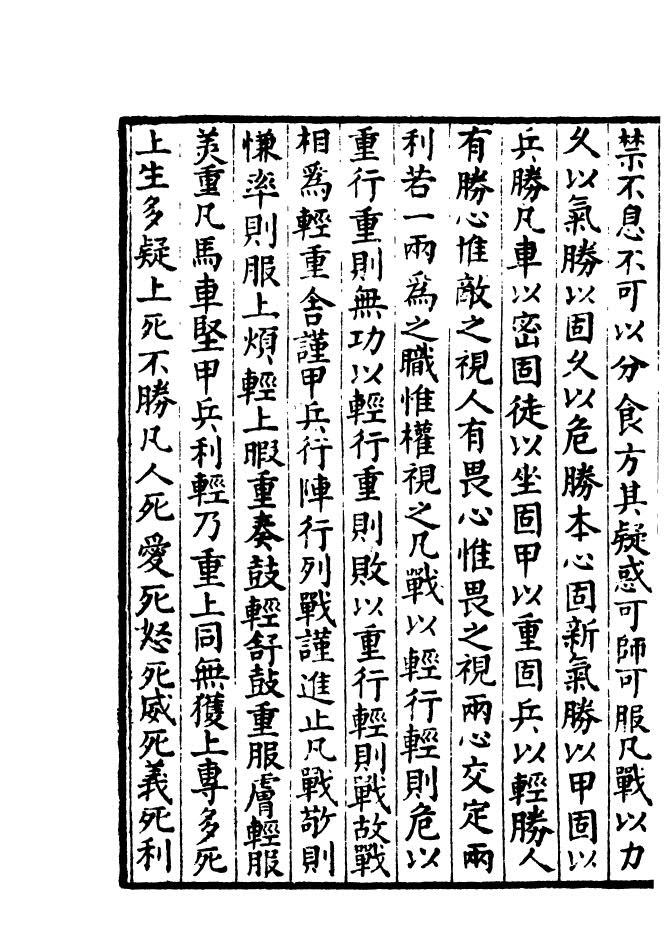 禁不息不可以分食方其疑惑可師可服凡戰以力
久以氣勝以固久以危勝本心固新氣勝以甲固以
兵勝凡車以密固徒以坐固甲以重固兵以輕勝人
有勝心惟敵之視人有畏心惟畏之視兩心交定兩
利若一兩爲之職惟權視之凡戰以輕行輕則危以
重行重則無功以輕行重則敗以重行輕則戰故戰
相爲輕重舍謹甲兵行陣行列戰謹進止凡戰敬則
慊率則服上煩輕上暇重奏鼓輕舒鼓重服膚輕服
美重凡馬車堅甲兵利輕乃重上同無獲上專多死
上生多疑上死不勝凡人死愛死怒死威死義死利